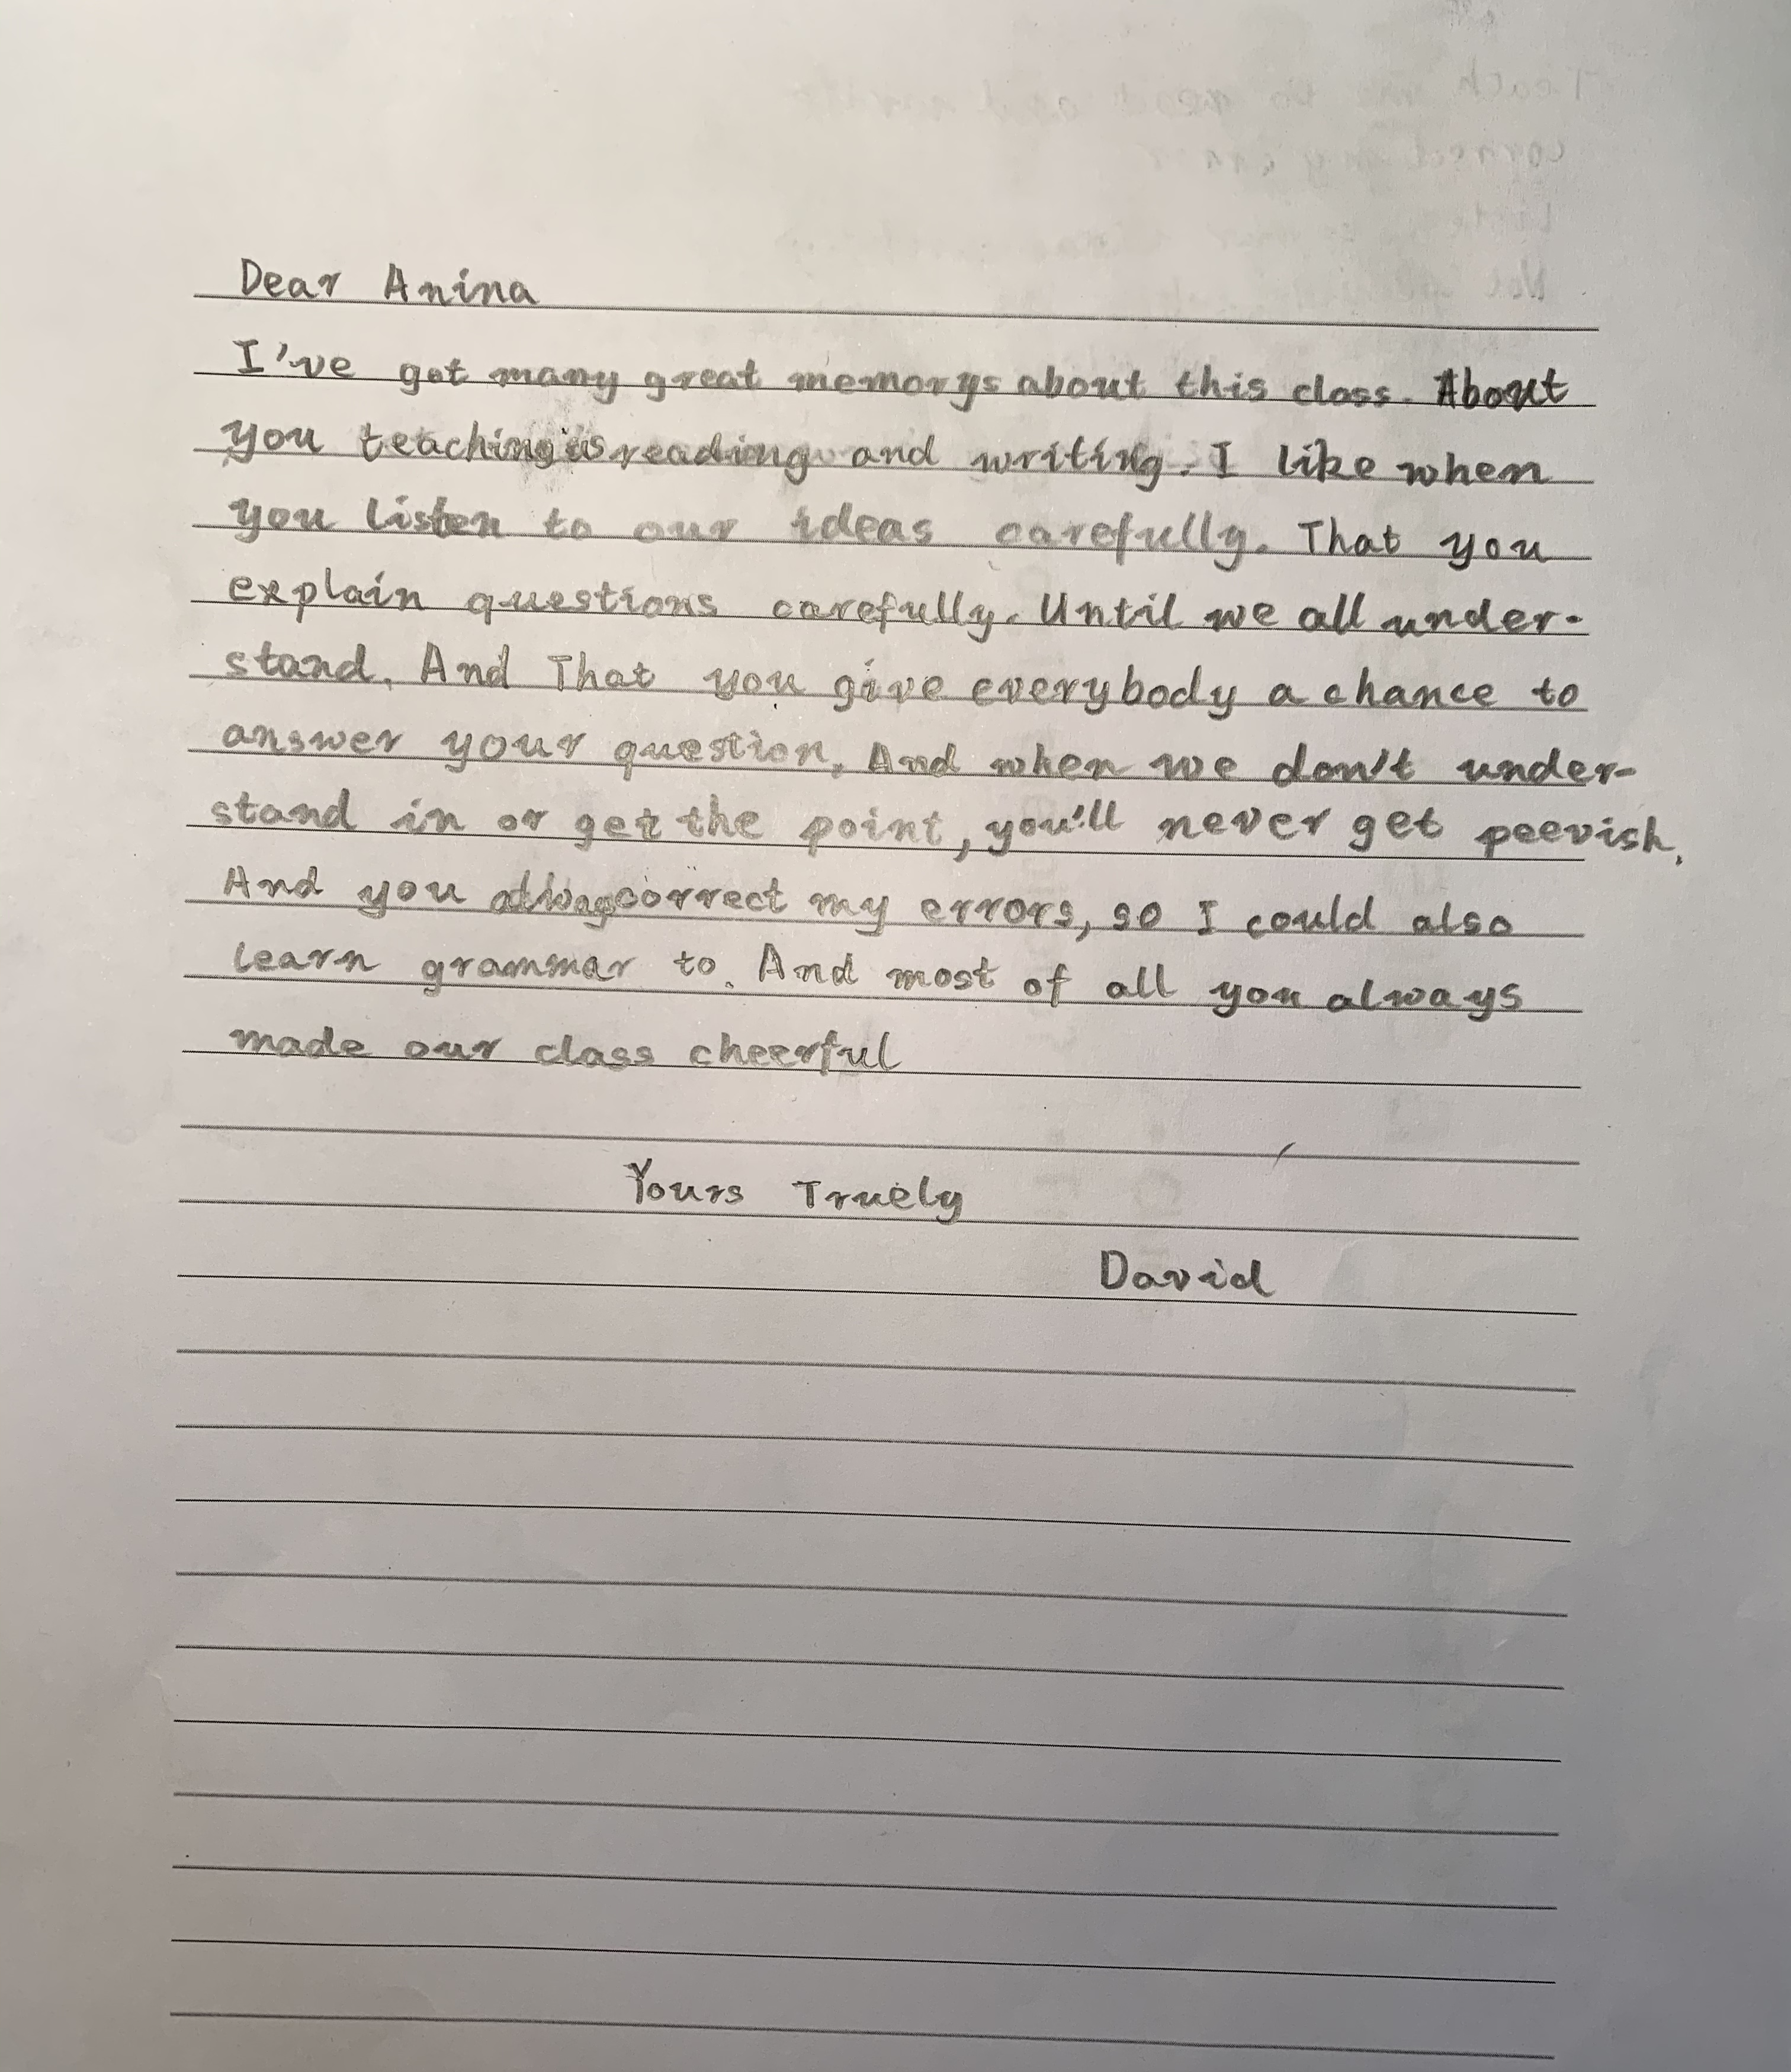 Dear Anina
I've got many great memorys about this class. About
you teaching us reading and writing. I like when
you listen to our ideas carefully. That you
explain questions carefully. Until we all under-
stand. And That you give everybody a chance to
answer your question. And when we don't under-
stand in or get the point, you'll never get peevish.
And you correct my errors, so I could also
learn grammar to. And most of all you always
made our class cheerful
Yours Truely
David